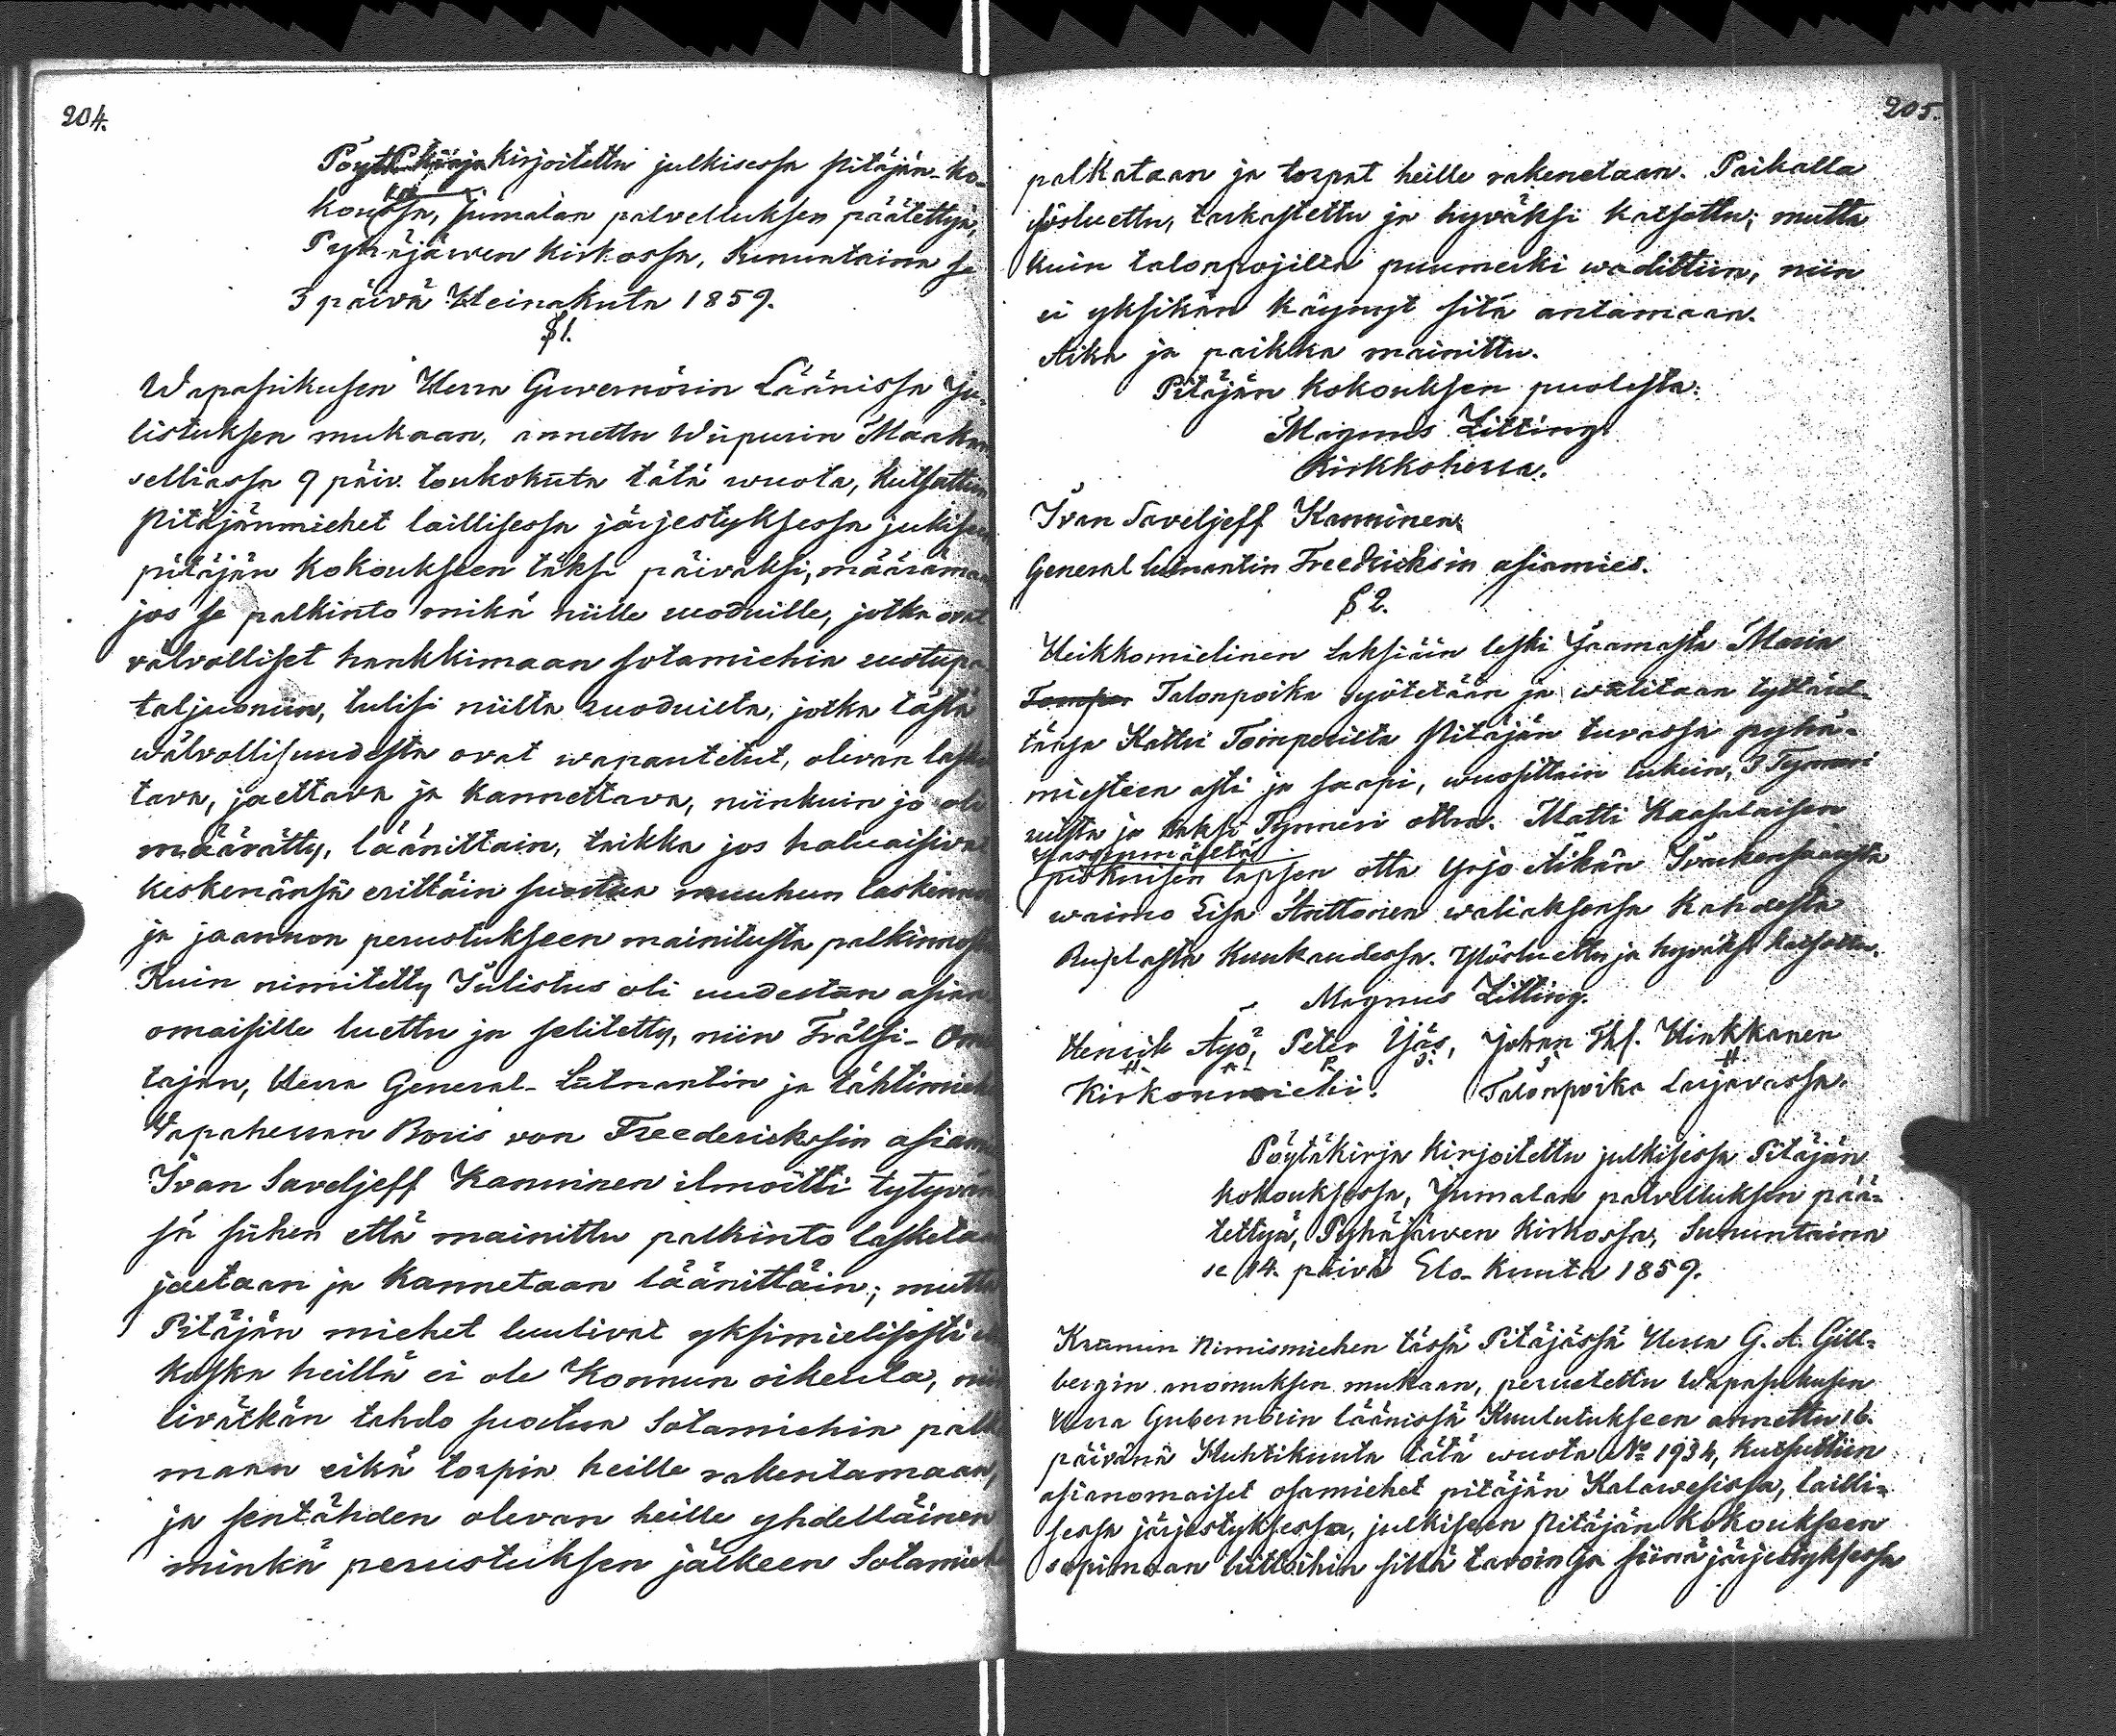 204.
Pöytäkirja kirjoitettu julkisessa Pitäjän-ko-
kouksessa, Jumalan palvelluksen päätettyä,
Pyhäjärwen Kirkossa, Sununtaina se
3 päivä Heinakuta 1859.
§ 1.
Wapasukusen Herra Guvernörin Läänissa Ju-
listuksen mukaan, annettu Wiipurin Maakan
selliassa 9 päiv. toukokuta tätä wuota, kutsuttin
Pitäjänmiehet laillisessa järjestyksessa julkisen
pitäjän kokoukseen täksi päiväksi, määrämän
jos se palkinto mikä niille ruoduille, jotka ovat
välvolliset hankkimaan sotamiehia ruotupa-
taljooniin, tulisi niilta ruoduilta, jotka tästä
wälvollisuudesta ovat wapautetut, olevan laske
tava, jaettava ja kannettava, niinkuin jo oli
määrätty, läänittain, taikka jos haluaisivat
keskenänsä erittäin suostua muuhun laskennon
ja jaannon perustukseen mainitusta palkinnosta
Kuin nimitetty Julistus oli uudestan asian-
omaisille luettu ja selitetty, niin Frälsi-Omis
tajan, Herra General-Lütnantin ja tähtimiehen
Vapaherran Boris von Freedericksin asiam
Ivan Saveljeff Kanninen ilmoitti tytyvän
sä siihen että mainittu palkinto lasketaan
jaetaan ja kannetaan läänittäin; mutta
Pitäjän miehet luulivat yksimielisesti et
koska heillä ei ole Konnun oikeuta, niin
eivätkän tahdo suostua Sotamiehia palk
maan eikä torpia heille rakentamaan,
ja sentähden olevan heille yhdelläinen
minkä perustuksen jälkeen Sotamieh
205.
palkataan ja torpat heille rakenetaan. Paikalla
ylösluettu, tarkastettu ja hyväksi katsottu; mutta
kuin talonpojilta puumerki waadittiin, niin
ei yksikän käynyt sitä antamaan.
Aika ja paikka mainittu.
Pitäjän kokouksen puolesta:
Magnus Litting
Kirkkoherra.
Ivan Saveljeff Kanninen
General lutnantin Freedricksin asiamies.
§ 2.
Heikkomielinen Laksiäin leski Jaamasta Maria
Talonpoika syötetään ja waalitaan tyttärel-
tänsä Katri Tomperilta Pitäjän tuvassa pyhä-
miesteen asti ja saapi, wuosittain lukein, 3 Tynneri
ruista ja kaksi Tynneri ottra. Matti Kaasalaisen
piskuisen lapsen otta Yrjo Äikän Ivaskensaarsta
waimo Lisa Anttonen waliaksensa kahdesta
Ruplasta Kuukaudessa. Ylösluettu ja hyväksi katsottu.
Magnus Litting.
Henrik Äyö, Peter Ijäs, Johan Thf. Hinkkanen
Kirkonmiehi. Talonpoika Larjavassa.
Pöytäkirja kirjoitettu julkisessa Pitäjän
kokouksessa, Jumalan palvelluksen pää-
tettyä, Pyhäjärwen Kirkossa, Sununtaina
se 14. päivä Elo-Kuuta 1859.
Krunun Nimismiehen tässä Pitäjässä Herra G. A. Gill-
bergin anomuksen mukaan, perustettu Wapasukusen
Herra Gubernörin läänissä Kuulutukseen annettu 16.
päivänä Huhtikuuta tätä wuota No 1934, kutsuttiin
asianomaiset osamiehet pitäjän Kalawesissa, lailli-
sessa järjestyksessa, julkiseen Pitäjän kokoukseen
sopimaan liittoihin sillä tavoin ja siinä järjestyksessa